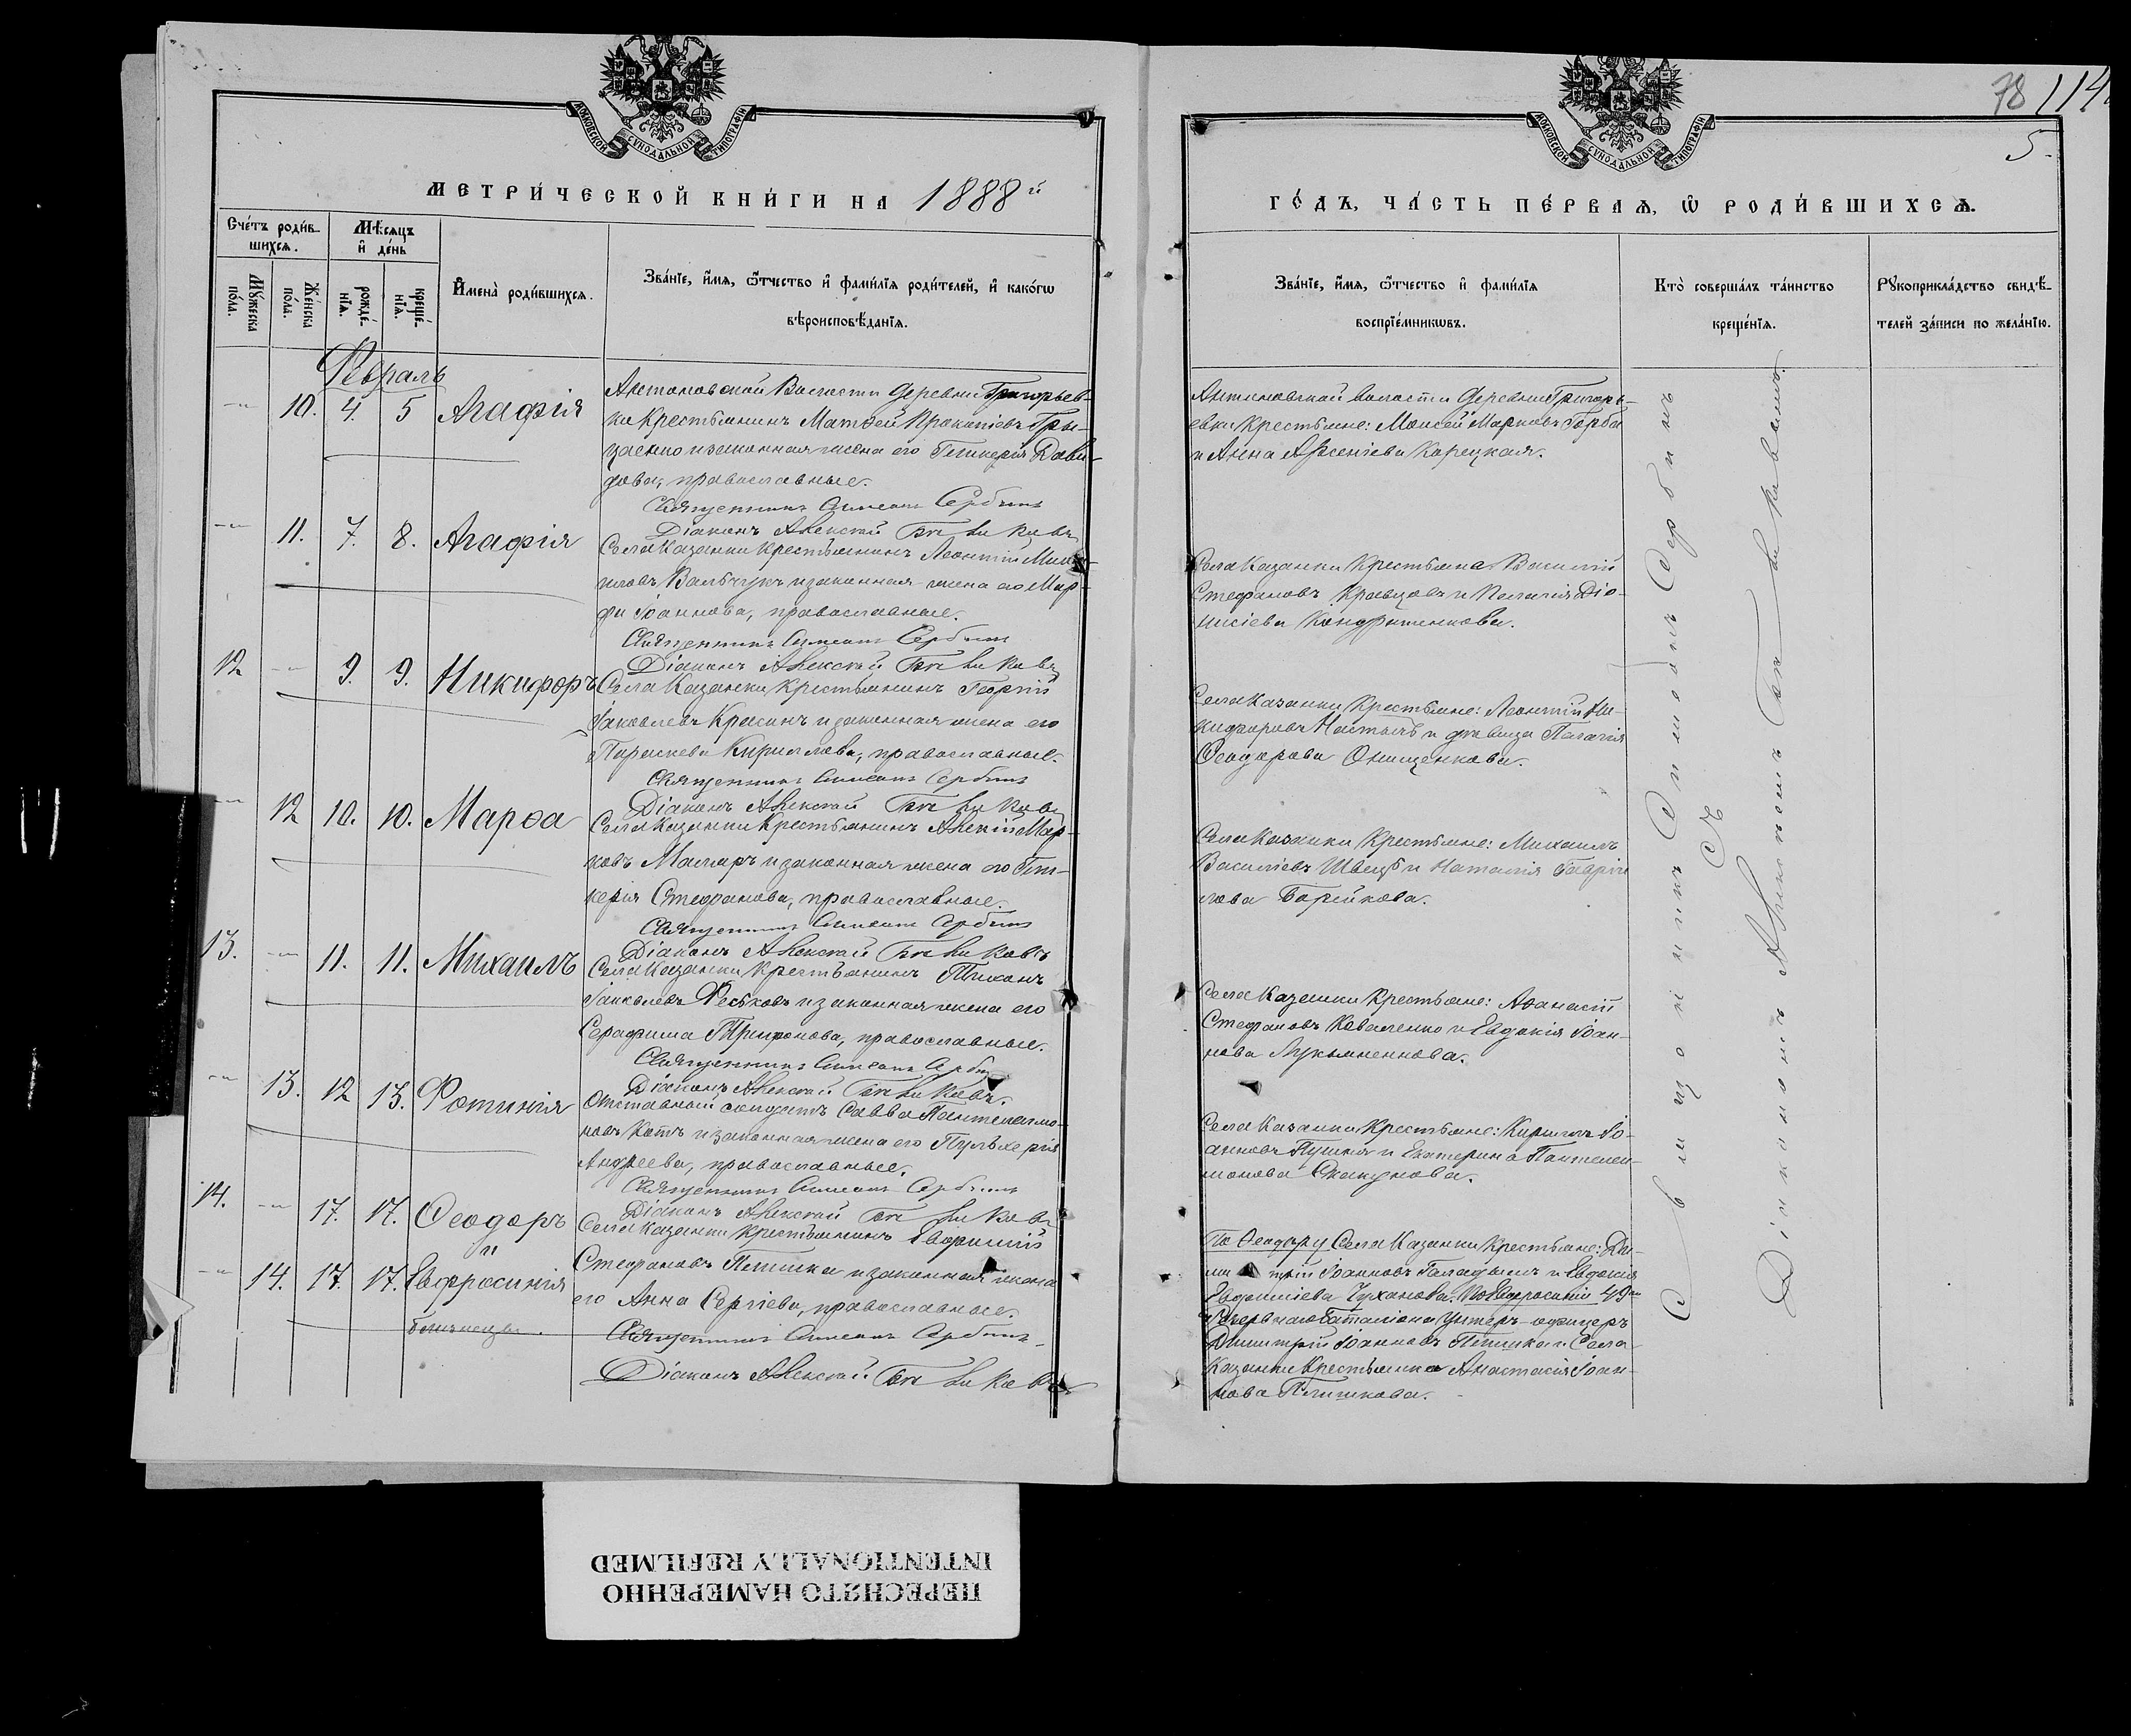 78 114
5.
МОСКОВСКОЙ СУНОДАЛЬНОЙ ТИПОГРАФІИ
МОСКОВСКОЙ СУНОДАЛЬНОЙ ТИПОГРАФІИ
МЕТРИ́ЧЕСКОЙ КНИ́ГИ НА 1888й
ГО́ДЪ, ЧА́СТЬ ПЕ́РВАѦ, Ѽ РОДИ́ВШИХСѦ.
Сче́тъ роди́в-
шихсѧ.
Мѣ́сѧцъ
и҆ де́нь
Мꙋ́жеска
по́ла.
Же́нска
по́ла.
рожде́-
нїѧ.
креще́-
нїѧ.
И҆мена̀ роди́вшихсѧ.
Зва́нїе, и҆́мѧ, ѻ҆́тчество и҆ фами́лїѧ роди́телей, и҆ како́гѡ
вѣроисповѣ́данїѧ.
Зва́нїе, и҆́мѧ, ѻ҆́тчество и҆ фами́лїѧ
воспрїе́мникѡвъ.
Кто̀ соверша́лъ та́инство
креще́нїѧ.
Рꙋкоприкла́дство свидѣ́-
телей за́писи по жела́нїю.
Февраль
10. 4. 5 Агафія
Антоновской Волости Деревни Григорьев-
ки Крестьянинъ Матѳей Прокопіевъ Гры-
ценко и законная жена его Гликерія Дави-
дова, православные.
Священникъ Симеонъ Сербинъ
Діаконъ Алексѣй
Антоновской волости Деревни Григорь-
евки Крестьяне: Моисей Марковъ Горба
и Анна Арсеніева Корецкая.
11. 7. 8. Агафія
Села Казанки Крестьянинъ Леонтій Миха-
иловъ Вальчукъ и законная жена его Мар-
фа Іоаннова, православные.
Священникъ Симеонъ Сербинъ
Діаконъ Алексѣй
Села Казанки Крестьяне Василій
Стефановъ Кравцовъ и Пелагія Діо-
нисіева Кондратенкова.
12 9. 9. Никифоръ
Села Казанки Крестьянинъ Георгій
Іаковлевъ Красинъ и законная жена его
Параскева Кириллова, православные.
Священникъ Симеонъ Сербинъ
Діаконъ Алексѣй
Села Казанки Крестьяне: Леонтій Ни-
кифоровъ и дѣвица Пелагія
Ѳеодорова Онищенкова.
12 10. 10. Марѳа
Села Казанки Крестьянинъ Алексій Мар-
ковъ Маляръ и законная жена его Гли-
керія Стефанова, православные.
Священникъ Симеонъ Сербинъ
Діаконъ Алексѣй
Села Казанки Крестьяне: Михаилъ
Василіевъ Швецъ и Наталія Гаврии
лова Борейкова.
13. 11. 11. Михаилъ
Села Казанки Крестьянинъ Тихонъ
Іаковлевъ Феськовъ и законная жена его
Серафима Трифонова, православные.
Священникъ Симеонъ Сербинъ
Діаконъ Алексѣй
Села Казанки Крестьяне: Аѳанасій
Стефановъ Коваленко и Евдокія Іоан-
нова Лукьяненкова.
13. 12 13. Фотинія
Отставный солдатъ Савва Пантелеимо-
новъ Котъ и законная жена его Пульхерія
Андреева, православные.
Священникъ Симеонъ Сербинъ
Діаконъ Алексѣй
Села Казанки Крестьяне: Кириллъ Іо-
анновъ Пушкя и Екатерина Пантелеи-
монова Скакунова.
14. 17. 17. Ѳеодоръ
и
14. 17. 17. Евфросинія
близнецы.
Села Казанки Крестьянинъ Евфимій
Стефановъ Плишка и законная жена
его Анна Сергіева, православные.
Священникъ Симеонъ Сербинъ
Діаконъ Алексѣй
По Ѳеодору Села Казанки Крестьяне: Ди-
ми трій Іоанновъ Галадымъ и Евдокія
Евдокимова Чуханова. По Евфросиніи 49го
Резервнаго Баталіона Унтеръ-офицеръ
Димитрій Іоанновъ Плишка и Села
Казанки Крестьянка Анастасія Іоан-
нова Плишкова.
Священникъ Симеонъ Сербинъ
Съ
Діакономъ Алексѣемъ
ПЕРЕСНЯТО НАМЕРЕННО
INTENTIONALLY REFILMED